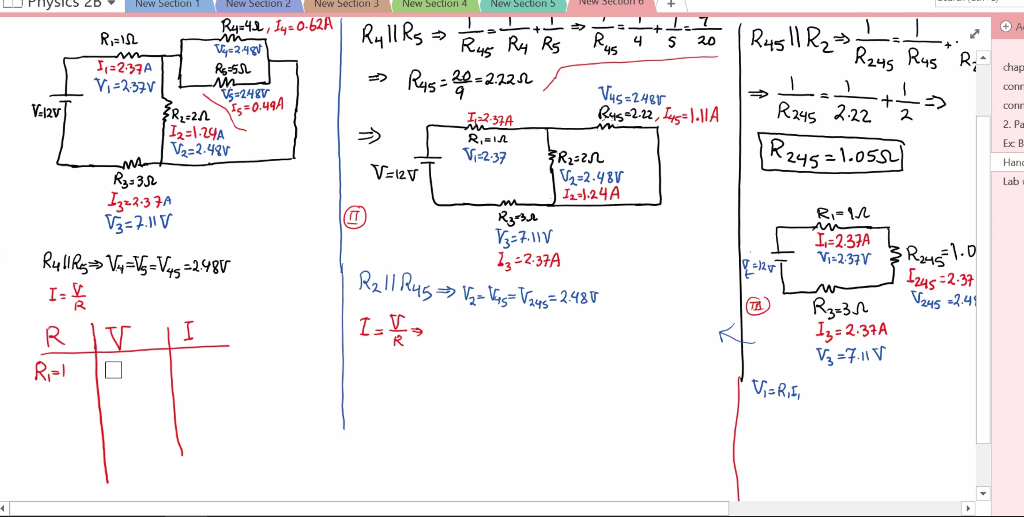 Physics 2B
New Section 1
New Section 2
New Section 3
New Section 4
New Section 5
New Section 6
+
R₄=4Ω, I₄=0.62A
V₄=2.48V
R₁=1Ω
I₁=2.37A
V₁=2.37V
R₅=5Ω
V₅=2.48V
I₅=0.49A
V=12V
R₂=2Ω
I₂=1.24A
V₂=2.48V
R₃=3Ω
I₃=2.37A
V₃=7.11V
R₄||R₅⇒V₄=V₅=V₄₅=2.48V
I=V/R
R | V | I
R₁=1
R₄||R₅ ⇒ 1/R₄₅=1/R₄+1/R₅ ⇒ 1/R₄₅=1/4+1/5=7/20
⇒ R₄₅=20/9=2.22Ω
V₄₅=2.48V
R₄₅=2.22, I₄₅=1.11A
⇒
I₁=2.37A
R₁=1Ω
V₁=2.37
V=12V
R₂=2Ω
V₂=2.48V
I₂=1.24A
R₃=3Ω
V₃=7.11V
I₃=2.37A
II
R₂||R₄₅⇒V₂=V₄₅=V₂₄₅=2.48V
I=V/R⇒
R₄₅||R₂⇒1/R₂₄₅=1/R₄₅+
⇒1/R₂₄₅=1/2.22+1/2⇒
R₂₄₅=1.05Ω
I₁=2.37A
V₁=2.37V
R₂₄₅=1.0
I₂₄₅=2.37
V₂₄₅=2.4
R₃=3Ω
I₃=2.37A
V₃=7.11V
V₁=R₁I₁
chap
conn
conn
2. Pa
Ex: B
Hand
Lab